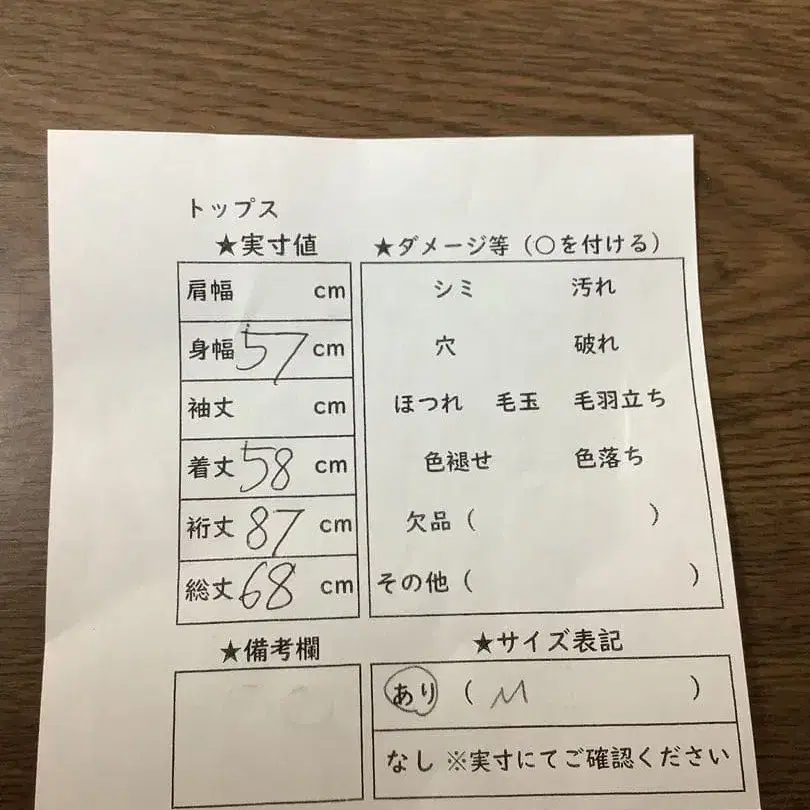 トップス
★実寸値
肩幅 cm
身幅 57 cm
袖丈 cm
着丈 58 cm
裄丈 87 cm
総丈 68 cm
★ダメージ等（○を付ける）
シミ 汚れ
穴 破れ
ほつれ 毛玉 毛羽立ち
色褪せ 色落ち
欠品（ ）
その他（ ）
★備考欄
★サイズ表記
あり（ M ）
なし ※実寸にてご確認ください